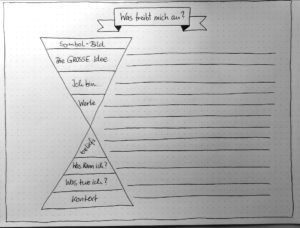 Was treibt mich an?
Symbol-Bild
Die GROSSE Idee
Ich bin...
Werte
Beliefs
Was kann ich?
Was tue ich?
Kontext